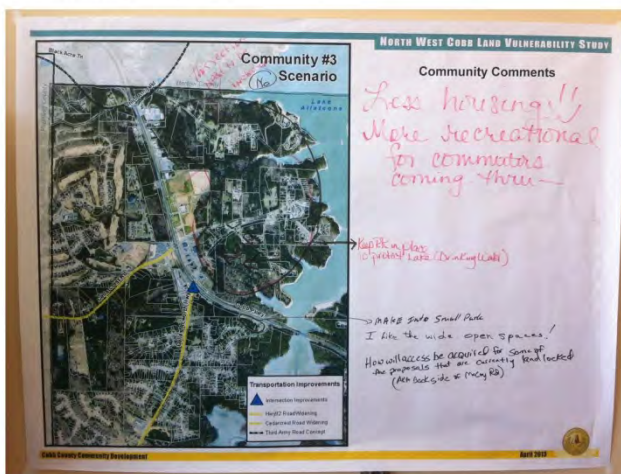 NORTH WEST COBB LAND VULNERABILITY STUDY
Community #3
Scenario
No
Community Comments
Lake
Allatoona
Less housing!!
More recreational
for commuters
coming thru—
protect Lake (Drinking Water)
MAKE Into Small Park
I like the wide open spaces!
How will access be acquired for some of
the proposals that are currently land locked
Transportation Improvements
Intersection Improvements
Hwy92 Road Widening
Cedarcrest Road Widening
Third Army Road Concept
Cobb County Community Development
April 2013